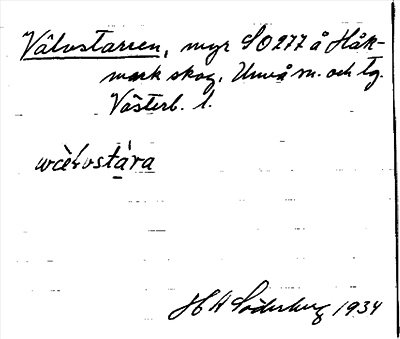 Välvostarren, myr SO 277 å Håk-
mark skog, Umeå sn. och tg.
Västerb. l.
H A Söderberg 1934